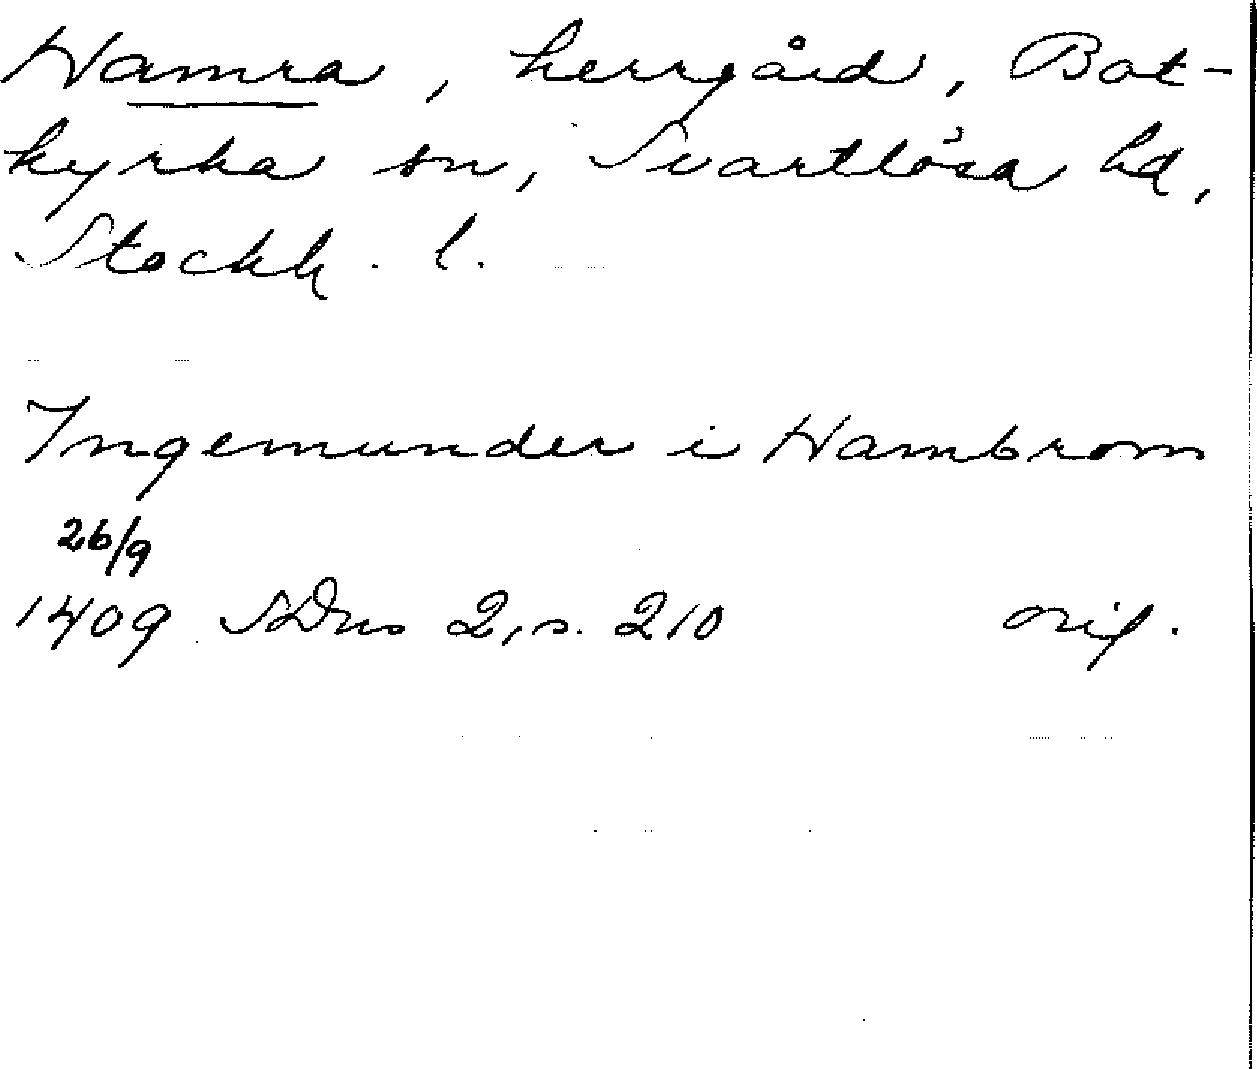 Hamra, herrgård, Bot-
kyrka sn, Svartlösa hd,
Stockh. l.
Ingemunder i Hambrom
26/9
1409 SDns 2, s. 210 orig.